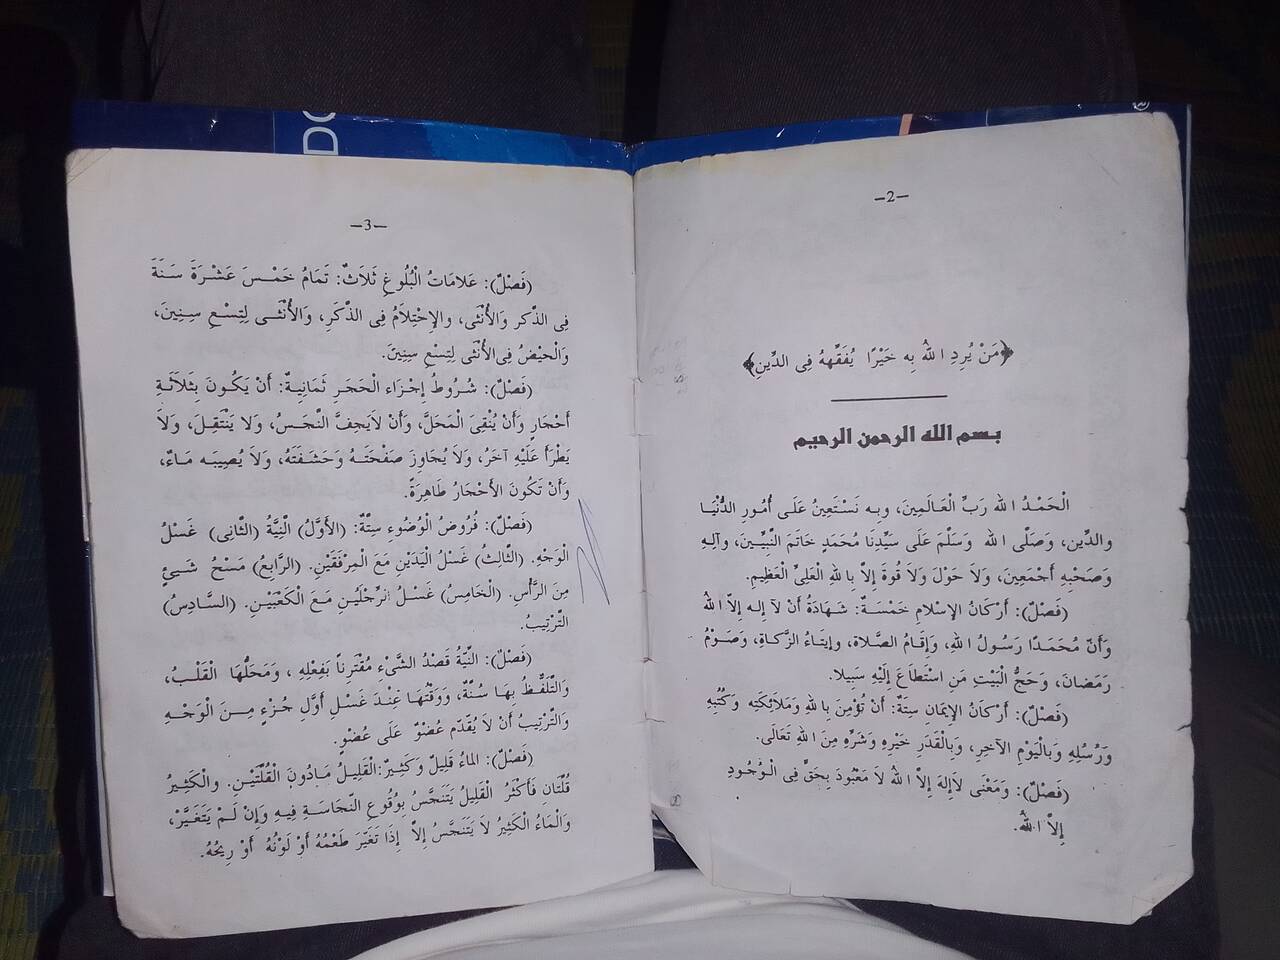 —2—
﴿مَنْ يُرِدِ اللهُ بِه خَيْرًا يُفَقِّههُ فِى الدِّينِ﴾
بسم الله الرحمن الرحيم
الْحَمْدُ الله رَبِّ الْعَالَمِينَ، وَبِه نَسْتَعِينُ عَلَى أُمُورِ الدُّنْيَا
والدِّين، وَصَلَّى الله وَسَلَّمَ عَلَى سَيِّدِنَا مُحَمَدٍ خَاتَمَ النَّبِيِّينَ، وآلِهِ
وَصَحْبِهِ أجْمَعَينَ، وَلاَ حَوْلَ وَلاَ قُوةَ إلاَّ بِاللهِ الْعَلِيِّ الْعَظِيمِ.
(فَصْلٌ): أَرْكَانُ الإسْلاَمِ خَمْسَةٌ: شَهَادَةُ أَنْ لآ إله إلاَّ اللهُ
وَأنَّ مُحَمَدًا رَسُولُ اللهِ، وَإقَامُ الصَّلاة، وإيتَاءُ الزَّكاةِ، وَصَوْمُ
رَمَضانَ، وَحَجُّ الْبَيْتِ مَن اسْتَطَاعَ إلَيْهِ سَبِيلا.
(فَصْلٌ): أَرْكَانُ الإيْمَانِ سِتَةٌ: أنْ تُؤْمِنَ بِاللهِ وَمَلاَئِكَتِه وَكُتُبِهِ
وَرُسُلِهِ وَبِالْيَوْمِ الآخِرِ، وَبِالْقَدَرِ خَيْرِهِ وَشَرِّهِ مِنَ اللهِ تَعَالَى.
(فَصْلٌ): وَمَعْنَى لاَإلهَ إلاَّ اللهُ لاَ مَعْبُودَ بِحَقٍّ فِى الْوُجُودِ
إلاَّ اللهُ.
—3—
(فَصْلٌ): عَلامَاتُ الْبُلُوغِ ثَلاَثٌ: تَمَامُ خَمْسَ عَشْرَةَ سَنَةً
فِى الذَّكر وَالأُنْثَى، والإحْتِلاَمُ فِى الذَّكَرِ، وَالأُنْثَى لِتِسْعِ سِنِينَ،
وَالْحيْضُ فِى الأُنْثَى لِتِسْعِ سِنِينَ.
(فَصْلٌ): شُرُوطُ إجْزَاءِ الْحَجَرِ ثَمَانِيةٌ: أَنْ يَكُونَ بِثَلاَثَةِ
أَحْجَارٍ وَأَنْ يُنْقِىَ الْمَحَلَّ، وَأَنْ لاَيَجِفَّ النَّجَسُ، وَلا يَنْتَقِلَ، وَلاَ
يَطْرَأَ عَلَيْهِ آخَرُ، وَلاَ يُجَاوِزَ صَفْحَتَهُ وَحَشَفَتَهُ، وَلاَ يُصِيبَه مَاءٌ،
وَأَنْ تَكُونَ الأَحْجَارُ طَاهِرَةً.
(فَصْلٌ): فُرُوضُ الْوُضُوء سِتَّةٌ: (الأَوَّلُ) النِّيَةُ (الثَّانِى) غَسْلُ
الْوَجْهِ. (الثَّالِثُ) غَسْلُ الْيَدَيْنِ مَعَ الْمِرْفَقَيْنِ. (الرَّابِعُ) مَسْحُ شَيئٍ
مِنَ الرَّأْسِ. (الْخَامِسُ) غَسْلُ الرِّجْلَيْنِ مَعَ الْكَعْبَيْنِ. (السَّادِسُ)
التَّرْتِيبُ.
(فَصْلٌ): النِّيَّةُ قَصْدُ الشَّىْء مُقْتَرِناً بَفِعْلِهِ ، وَمَحَلُّهَا الْقَلْبُ،
وَالتَّلَفُّظُ بِهَا سُنَّةٌ، وَوَقْتُهَا عِنْدَ غَسْلِ أَوَّلِ جُزْءٍ مِنَ الْوَجْهِ
وَالتَّرْتِيبُ أَنْ لاَ يُقَدِّم عُضْوٌ عَلَى عُضْوٍ.
(فَصْلٌ): الماءُ قَلِيلٌ وَكَثِيرٌ:القَلِيلُ مَادُونَ الْقُلَّتَيْنِ. والْكَثِيرُ
قُلَّتَانِ فَأَكْثَرُ القَلِيلُ يَتَنَجَّسُ بِوُقُوعِ النَّجَاسَةِ فِيهِ وَإنْ لَمْ يَتَغَيَّرْ،
وَالْمَاءُ الْكَثِيرُ لاَ يَتَنَجَّسُ إلاَّ إذَا تَغَيَّرَ طَعْمُهُ أَوْ لَوْنُهُ أَوْ رِيحُهُ.